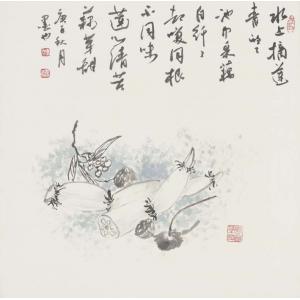 水上摘莲
青的的
池中采藕
白纤纤
却嗳同根
不同味
莲心清苦
藕芽甜
庚子秋月
墨书